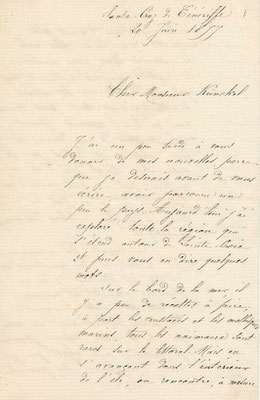 Santa Cruz de Ténériffe
20 Juin 1897
Cher Monsieur Künckel
J'ai un peu tardé à vous
donner de mes nouvelles parce
que je désirais avant de vous
écrire avoir parcouru un
peu le pays. Aujourd'hui j'ai
exploré toute la région qui
s'étend autour de Sainte Croix
et puis vous en dire quelques
mots.
Sur le bord de la mer il
y a peu de récoltes à faire,
à part les crustacés et les mollusques
marins tous les animaux sont
rares sur le littoral. Mais en
s'avançant dans l'intérieur
de l'île, on rencontre, à mesure